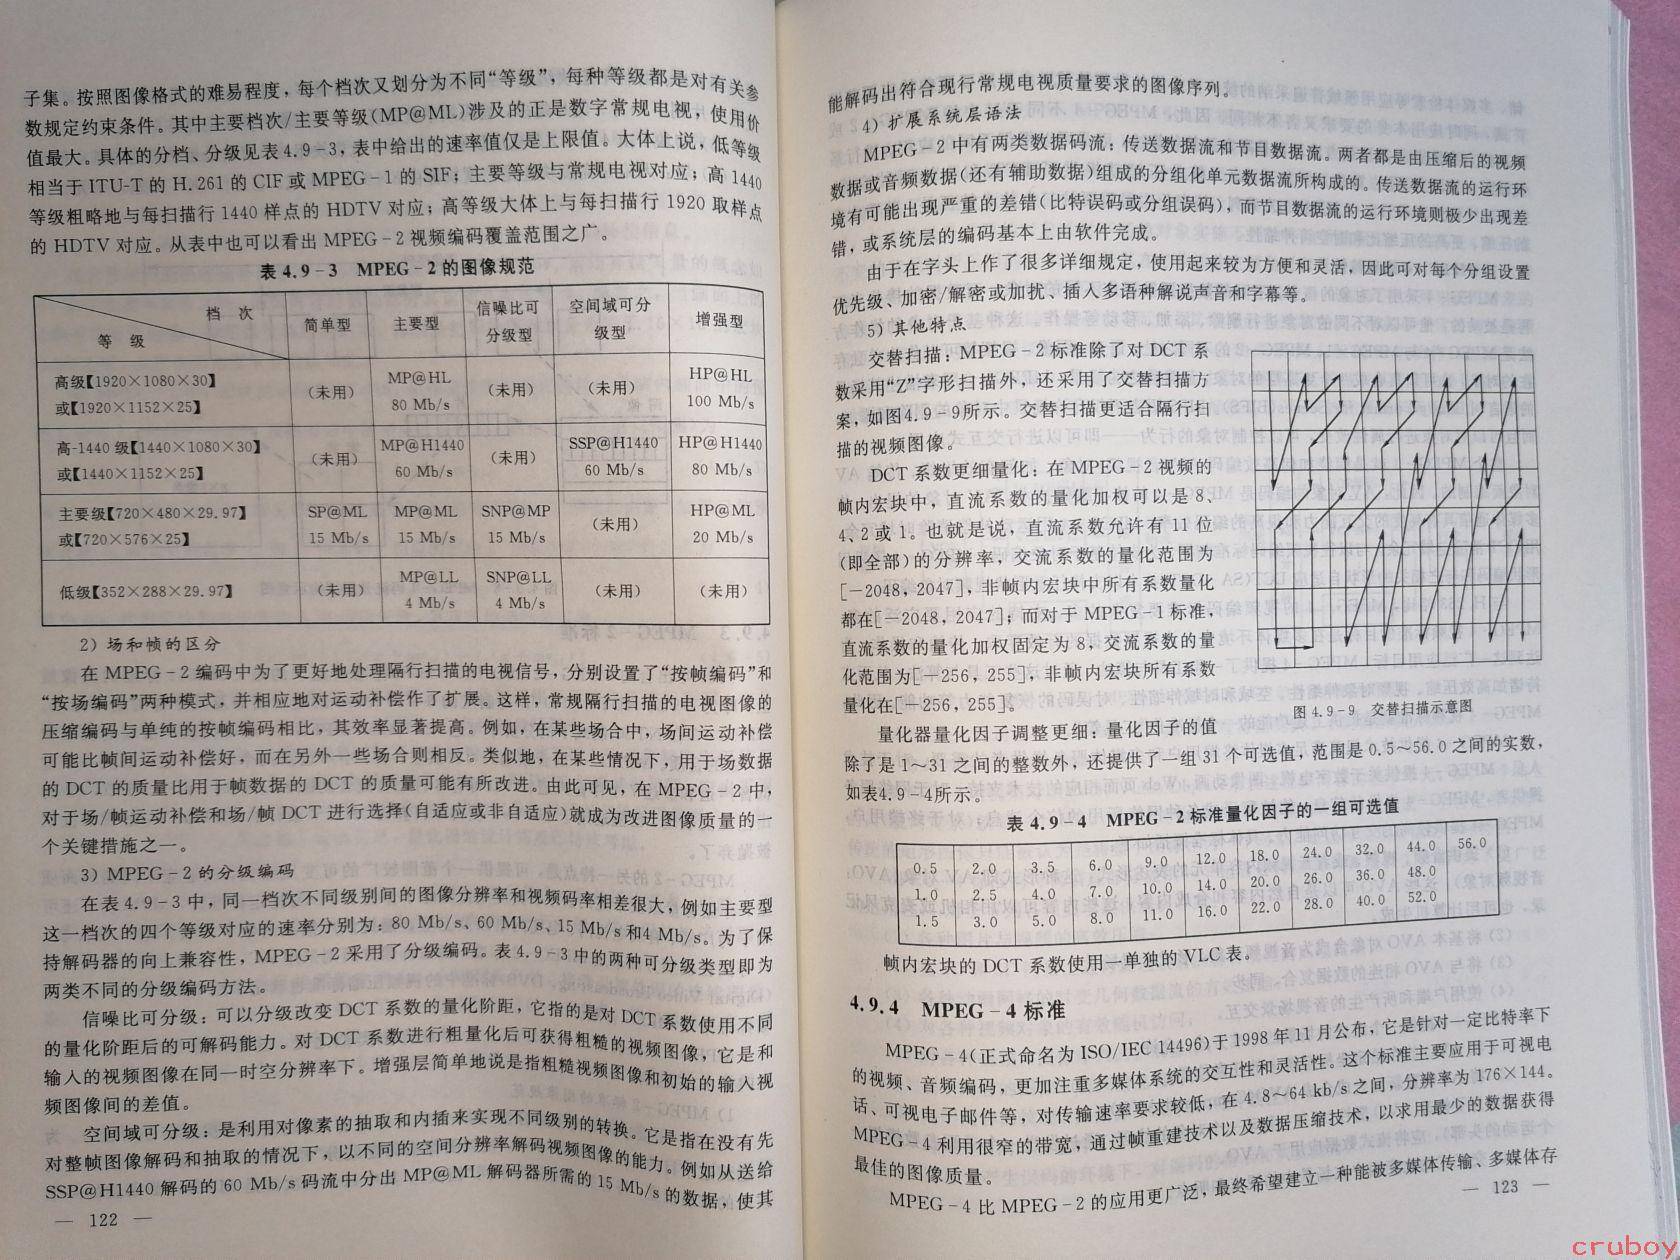 子集。按照图像格式的难易程度，每个档次又划分为不同“等级”，每种等级都是对有关参
数规定约束条件。其中主要档次/主要等级(MP@ML)涉及的正是数字常规电视，使用价
值最大。具体的分档、分级见表4.9-3，表中给出的速率值仅是上限值。大体上说，低等级
相当于ITU-T的H.261的CIF或MPEG-1的SIF；主要等级与常规电视对应；高1440
等级粗略地与每扫描行1440样点的HDTV对应；高等级大体上与每扫描行1920取样点
的HDTV对应。从表中也可以看出MPEG-2视频编码覆盖范围之广。
表 4.9-3 MPEG-2的图像规范
档 次
等 级
简单型
主要型
信噪比可
分级型
空间域可分
级型
增强型
高级【1920×1080×30】
或【1920×1152×25】
(未用)
MP@HL
80 Mb/s
(未用)
(未用)
HP@HL
100 Mb/s
高-1440级【1440×1080×30】
或【1440×1152×25】
(未用)
MP@H1440
60 Mb/s
(未用)
SSP@H1440
60 Mb/s
HP@H1440
80 Mb/s
主要级【720×480×29.97】
或【720×576×25】
SP@ML
15 Mb/s
MP@ML
15 Mb/s
SNP@MP
15 Mb/s
(未用)
HP@ML
20 Mb/s
低级【352×288×29.97】
(未用)
MP@LL
4 Mb/s
SNP@LL
4 Mb/s
(未用)
(未用)
2) 场和帧的区分
在MPEG-2编码中为了更好地处理隔行扫描的电视信号，分别设置了“按帧编码”和
“按场编码”两种模式，并相应地对运动补偿作了扩展。这样，常规隔行扫描的电视图像的
压缩编码与单纯的按帧编码相比，其效率显著提高。例如，在某些场合中，场间运动补偿
可能比帧间运动补偿好，而在另外一些场合则相反。类似地，在某些情况下，用于场数据
的DCT的质量比用于帧数据的DCT的质量可能有所改进。由此可见，在MPEG-2中，
对于场/帧运动补偿和场/帧DCT进行选择(自适应或非自适应)就成为改进图像质量的一
个关键措施之一。
3) MPEG-2的分级编码
在表4.9-3中，同一档次不同级别间的图像分辨率和视频码率相差很大，例如主要型
这一档次的四个等级对应的速率分别为：80 Mb/s、60 Mb/s、15 Mb/s和4 Mb/s。为了保
持解码器的向上兼容性，MPEG-2采用了分级编码。表4.9-3中的两种可分级类型即为
两类不同的分级编码方法。
信噪比可分级：可以分级改变DCT系数的量化阶距，它指的是对DCT系数使用不同
的量化阶距后的可解码能力。对DCT系数进行粗量化后可获得粗糙的视频图像，它是和
输入的视频图像在同一时空分辨率下。增强层简单地说是指粗糙视频图像和初始的输入视
频图像间的差值。
空间域可分级：是利用对像素的抽取和内插来实现不同级别的转换。它是指在没有先
对整帧图像解码和抽取的情况下，以不同的空间分辨率解码视频图像的能力。例如从送给
SSP@H1440解码的60 Mb/s码流中分出MP@ML解码器所需的15 Mb/s的数据，使其
— 122 —
能解码出符合现行常规电视质量要求的图像序列。
4) 扩展系统层语法
MPEG-2中有两类数据码流：传送数据流和节目数据流。两者都是由压缩后的视频
数据或音频数据(还有辅助数据)组成的分组化单元数据流所构成的。传送数据流的运行环
境有可能出现严重的差错(比特误码或分组误码)，而节目数据流的运行环境则极少出现差
错，或系统层的编码基本上由软件完成。
由于在字头上作了很多详细规定，使用起来较为方便和灵活，因此可对每个分组设置
优先级、加密/解密或加扰、插入多语种解说声音和字幕等。
5) 其他特点
交替扫描：MPEG-2标准除了对DCT系
数采用“Z”字形扫描外，还采用了交替扫描方
案，如图4.9-9所示。交替扫描更适合隔行扫
描的视频图像。
DCT系数更细量化：在MPEG-2视频的
帧内宏块中，直流系数的量化加权可以是8、
4、2或1。也就是说，直流系数允许有11位
(即全部)的分辨率，交流系数的量化范围为
[-2048，2047]，非帧内宏块中所有系数量化
都在[-2048，2047]；而对于MPEG-1标准，
直流系数的量化加权固定为8，交流系数的量
化范围为[-256，255]，非帧内宏块所有系数
量化在[-256，255]。
图 4.9-9 交替扫描示意图
量化器量化因子调整更细：量化因子的值
除了是1～31之间的整数外，还提供了一组31个可选值，范围是0.5～56.0之间的实数，
如表4.9-4所示。
表 4.9-4 MPEG-2标准量化因子的一组可选值
0.5 2.0 3.5 6.0 9.0 12.0 18.0 24.0 32.0 44.0 56.0
1.0 2.5 4.0 7.0 10.0 14.0 20.0 26.0 36.0 48.0
1.5 3.0 5.0 8.0 11.0 16.0 22.0 28.0 40.0 52.0
帧内宏块的DCT系数使用一单独的VLC表。
4.9.4 MPEG-4标准
MPEG-4(正式命名为ISO/IEC 14496)于1998年11月公布，它是针对一定比特率下
的视频、音频编码，更加注重多媒体系统的交互性和灵活性。这个标准主要应用于可视电
话、可视电子邮件等，对传输速率要求较低，在4.8～64 kb/s之间，分辨率为176×144。
MPEG-4利用很窄的带宽，通过帧重建技术以及数据压缩技术，以求用最少的数据获得
最佳的图像质量。
MPEG-4比MPEG-2的应用更广泛，最终希望建立一种能被多媒体传输、多媒体存
— 123 —
cruboy